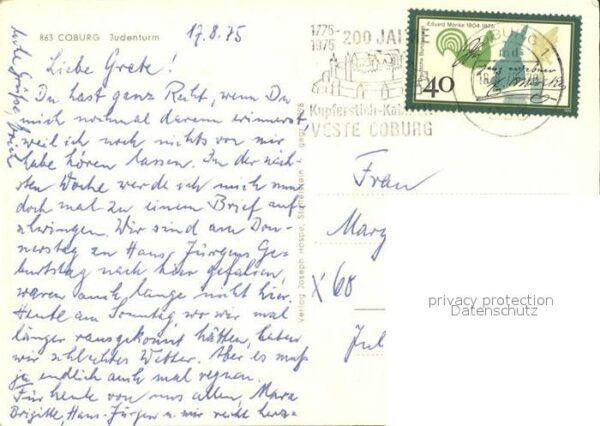 863 COBURG Judenturm
17.8.75
Liebe Grete!
Du hast ganz Recht, wenn Du
mich nochmal daran erinnerst,
weil ich noch nichts von mir
habe hören lassen. In der näch-
sten Woche werde ich mich nun
doch mal zu einem Brief auf-
schwingen. Wir sind am Don-
nerstag zu Hans Jürgens Ge-
burtstag nach hier gefahren,
waren auch lange nicht hier.
Heute am Sonntag, wo wir mal
länger rausgekonnt hätten, haben
wir schlechtes Wetter. Aber es muß
ja endlich auch mal regnen.
Für heute von uns allen,
Brigitte, Hans-Jürgen u. mir recht herz-
liche Grüße,
Verlag Joseph Hospe, Staffelstein
1775-
1975
200 JAH
Kupferstich-Ka
VESTE COBURG
Eduard Mörike 1804-1875
Deutsche Bundespost
40
COBURG 1
Frau
Marg
X 68
Jul
privacy protection
Datenschutz